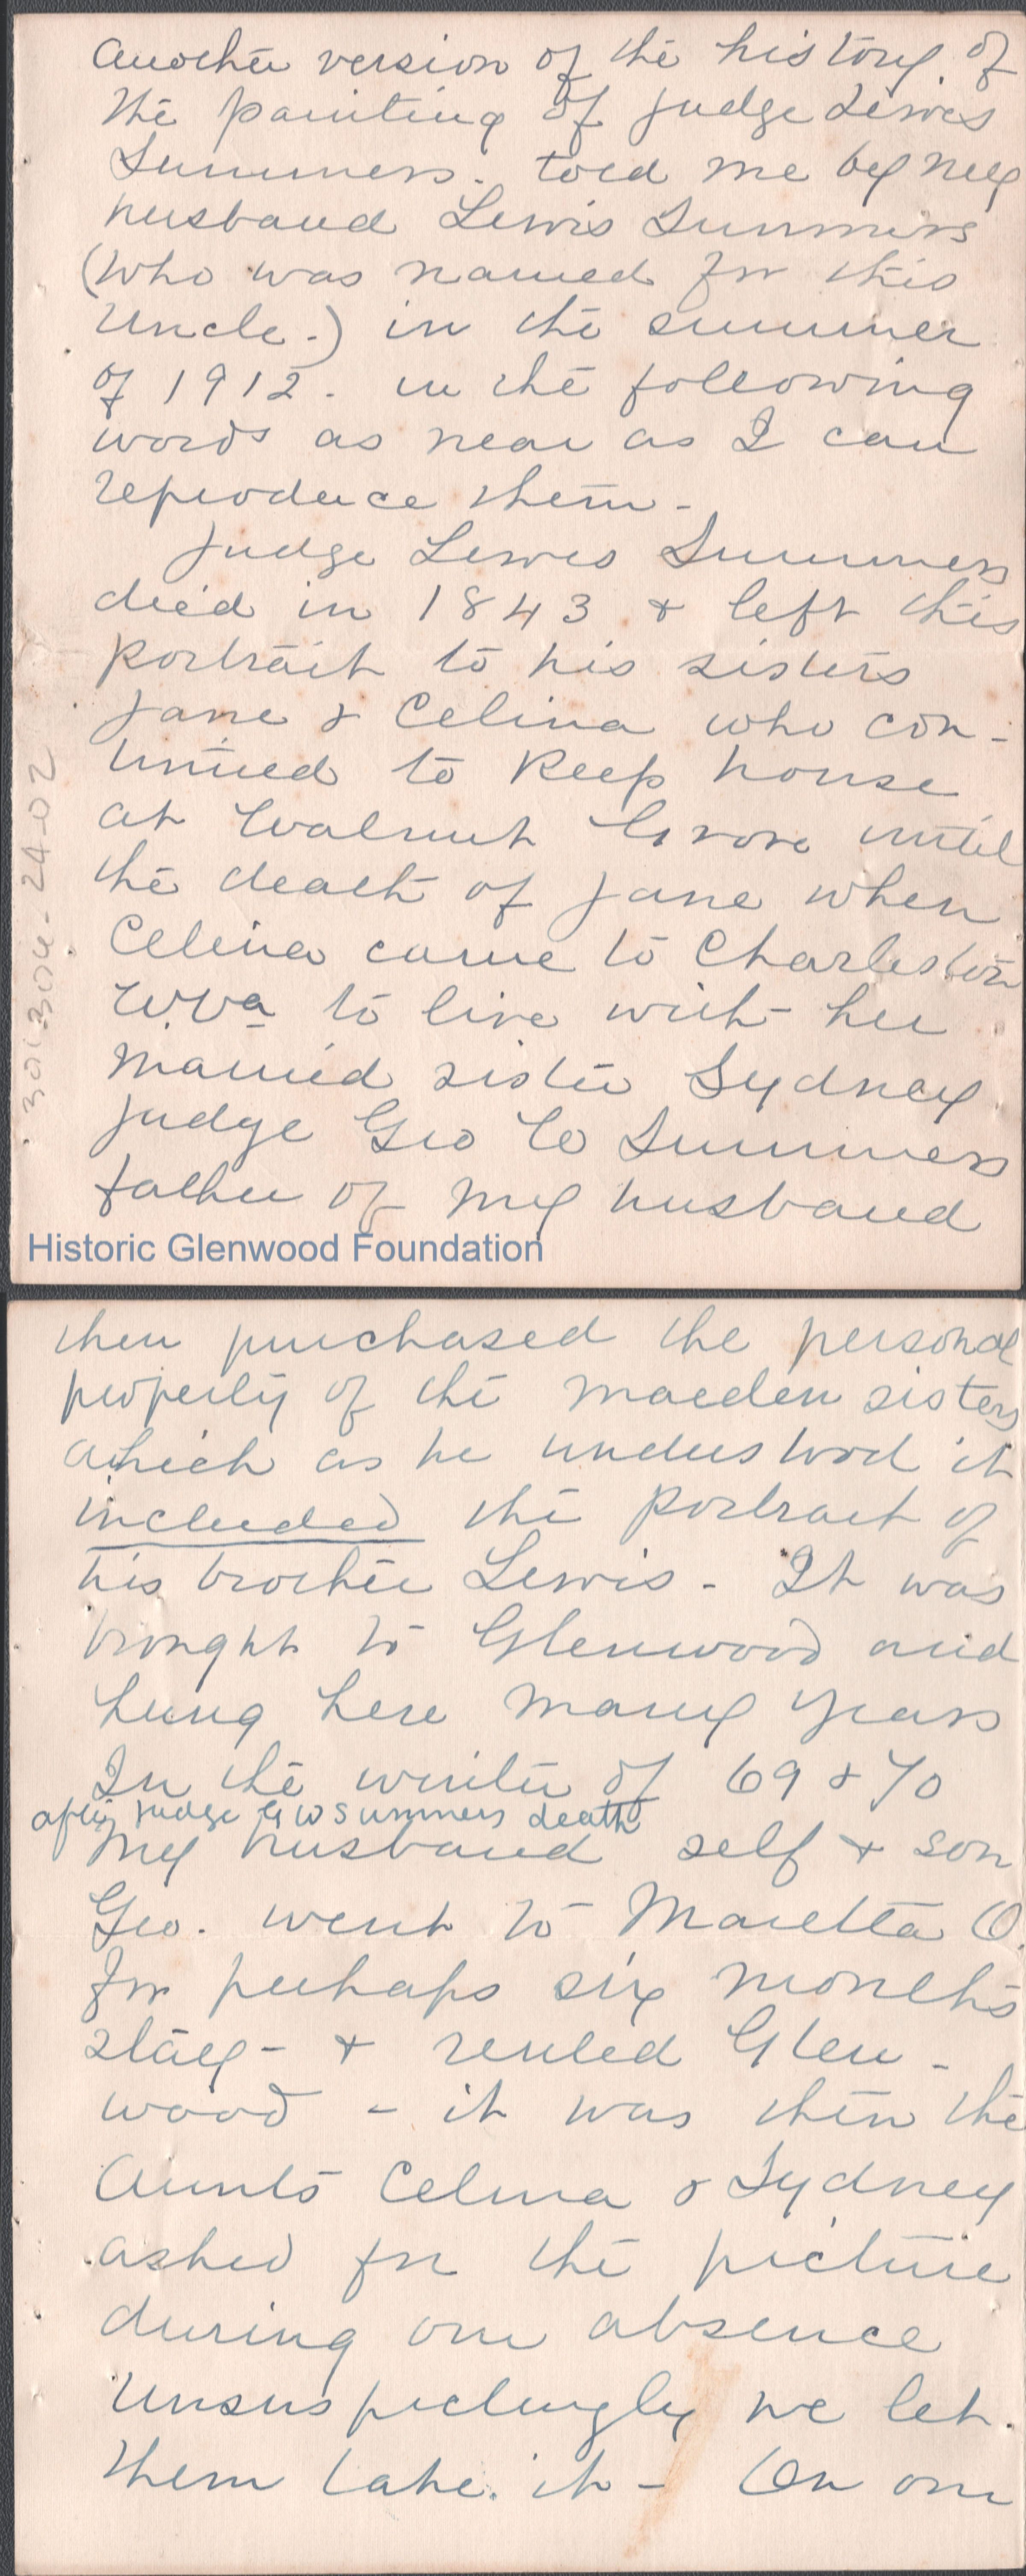 Another version of the history of
the painting of Judge Lewis
Summers. told me by my
husband Lewis Summers
(who was named for this
Uncle.) in the summer
of 1912. in the following
words as near as I can
reproduce them.
Judge Lewis Summers
died in 1843 & left this
portrait to his sisters
Jane & Celina who con-
tinued to keep house
at Walnut Grove until
the death of Jane when
Celina came to Charleston
W.Va to live with her
married sister Sydney
Judge Geo W Summers
father of my husband
Historic Glenwood Foundation
then purchased the personal
property of the maeden sisters
which as he understood it
included the portrait of
his brother Lewis - It was
brought to Glenwood and
hung here many years
In the winter of 69 & 70
after Judge G W Summers death
my husband self & son
Geo. went to Marietta O.
for perhaps six months
stay - & rented Glen-
wood - it was then the
Aunts Celina & Sydney
asked for the picture
during our absence
Unsuspectingly we let
them take it - On our